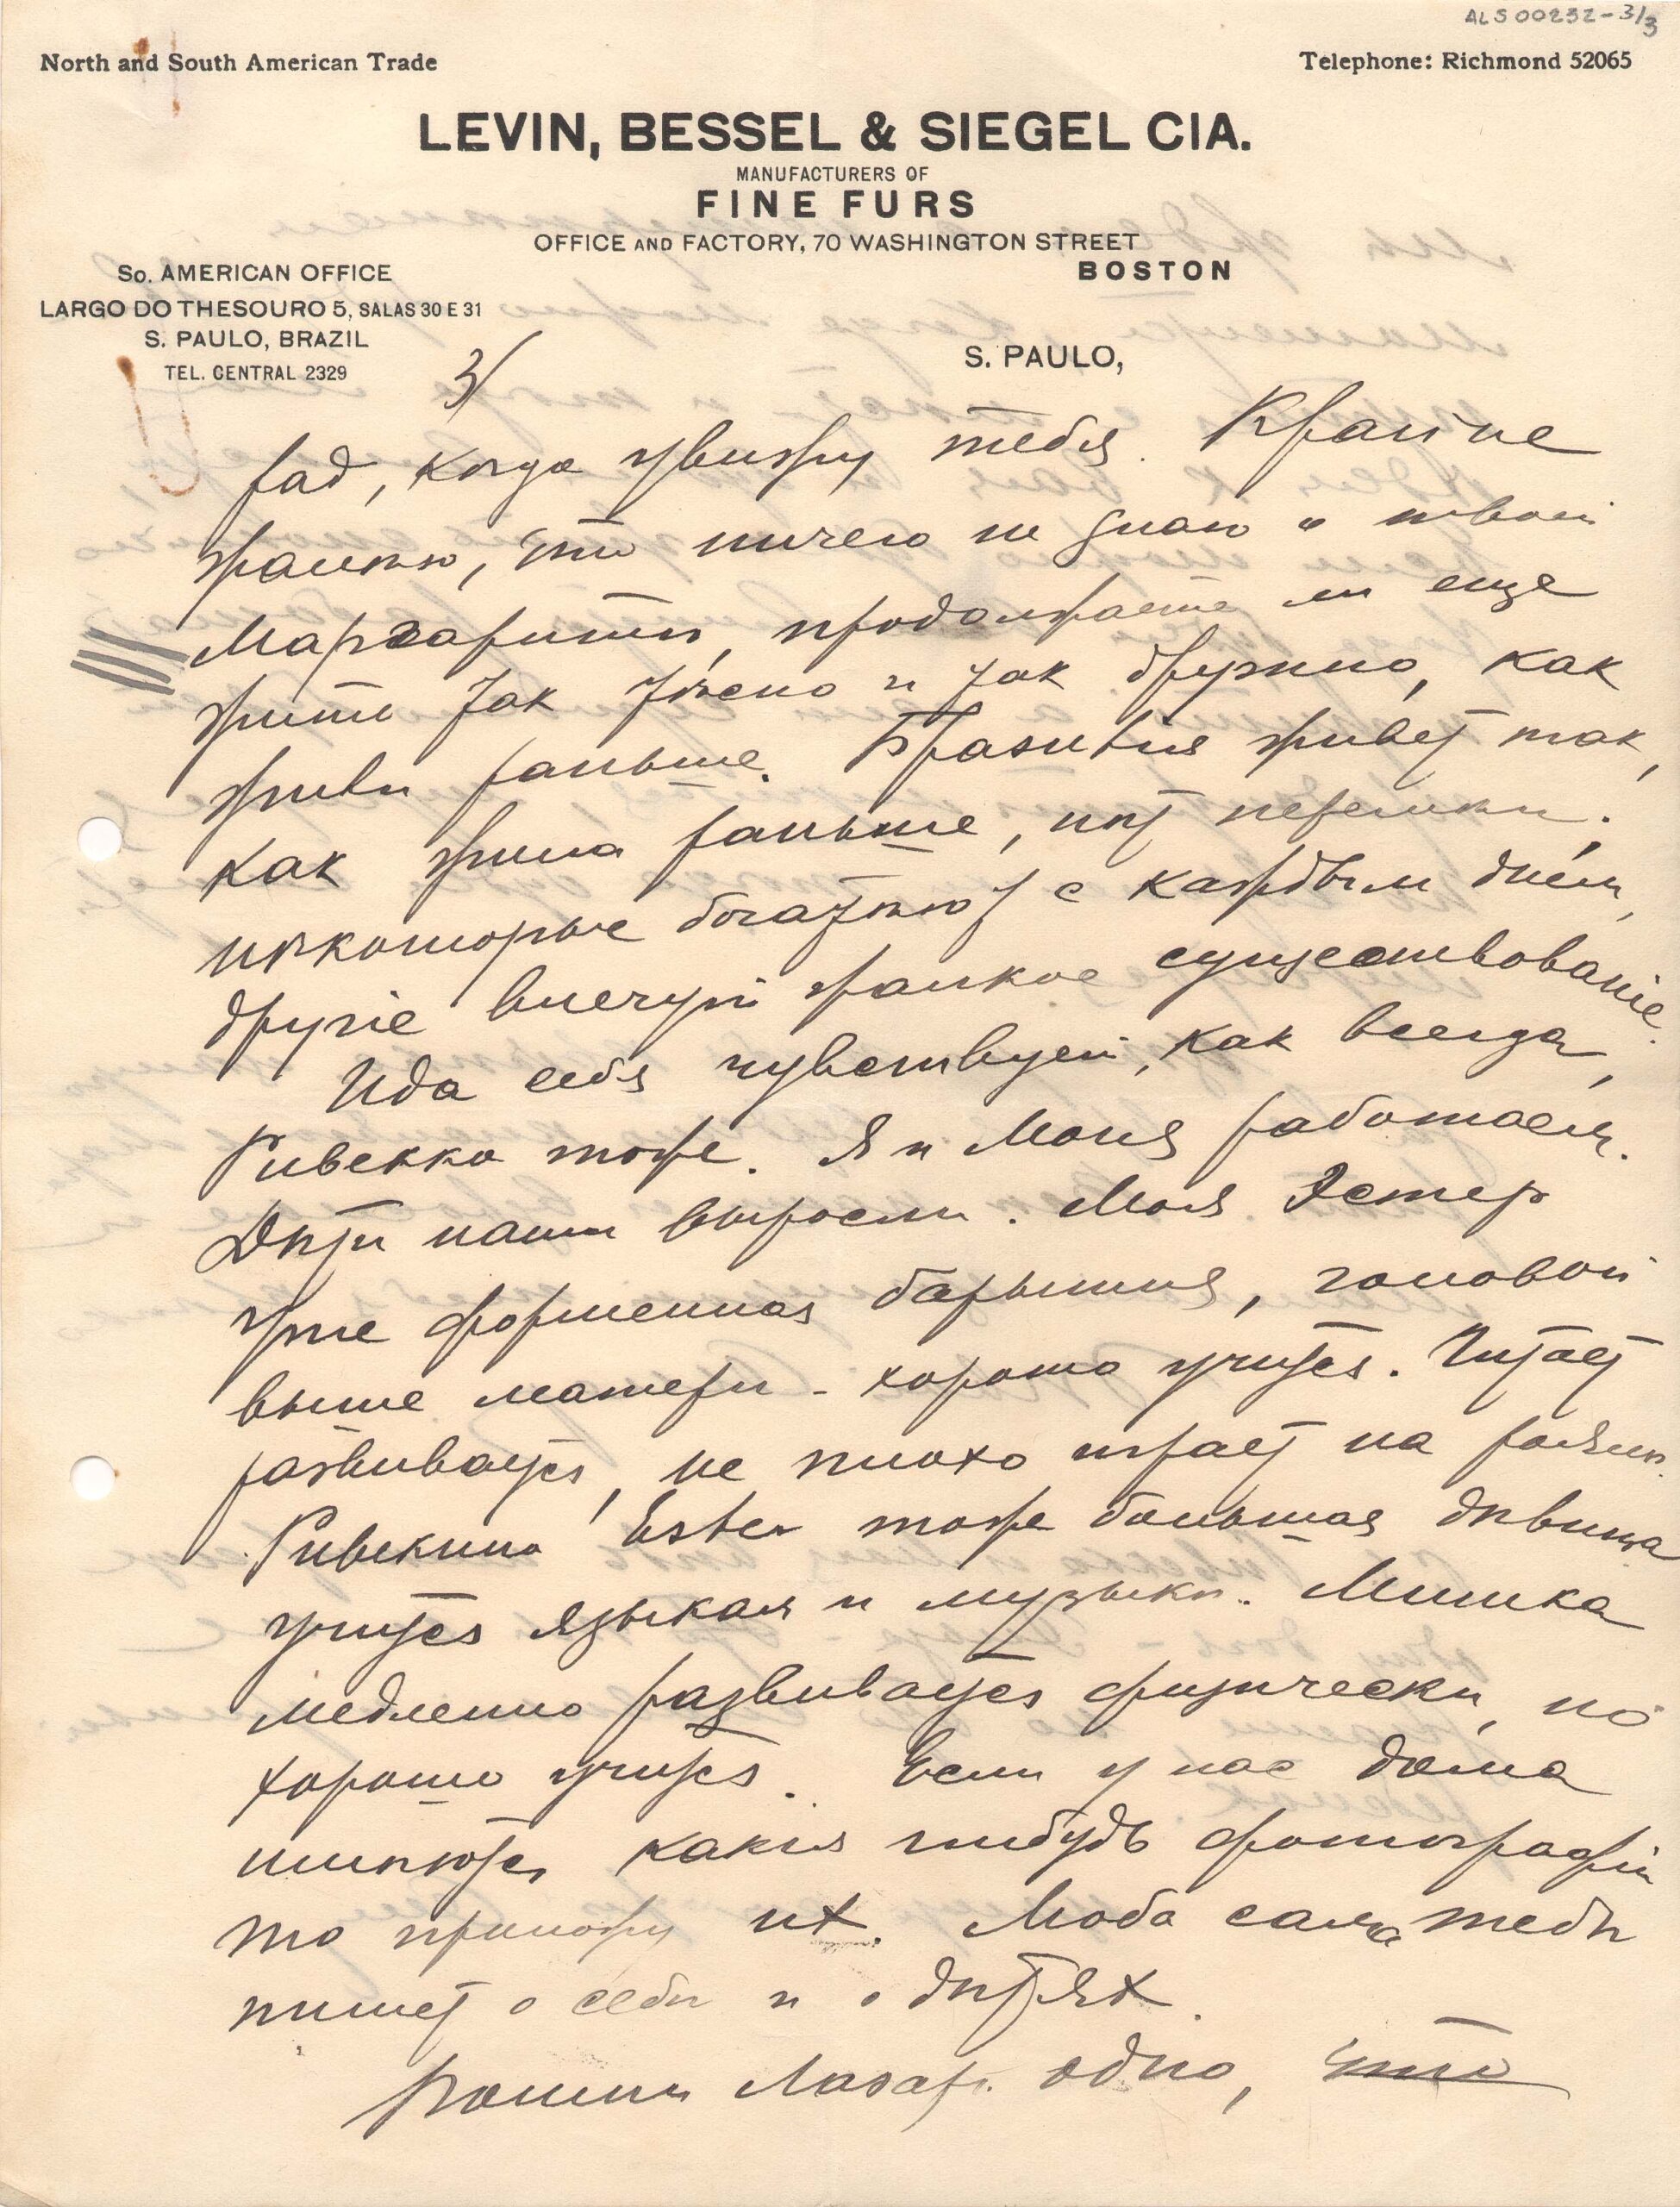 ALS 00232-3/3
North and South American Trade
Telephone: Richmond 52065
LEVIN, BESSEL & SIEGEL CIA.
MANUFACTURERS OF
FINE FURS
OFFICE AND FACTORY, 70 WASHINGTON STREET
BOSTON
So. AMERICAN OFFICE
LARGO DO THESOURO 5, SALAS 30 E 31
S. PAULO, BRAZIL
TEL. CENTRAL 2329
S. PAULO,
3/
рад, когда увижу тебя. Крайне
жалѣю, что ничего не знаю о твоей
Маргаритѣ, продолжаете ли еще
жить так тѣсно и так дружно, как
жили раньше. Бразилія живет так,
как жила раньше, нѣт перемѣн.
нѣкоторые богатѣют с каждым днем,
другіе влечут жалкое существованіе.
Ида себя чувствует, как всегда,
Ривекка тоже. Я и Моня работаем.
Дѣти наши выросли. Моя Эстер
уже форменная барышня, головой
выше матери - хорошо учится. Читает
развивается, не плохо играет на роялѣ.
Ривекина Ester тоже большая дѣвица
учится языкам и музыкѣ. Мишка
медленно развивается физически, но
хорошо учится. Если у нас дома
имѣются какія нибудь фотографіи
то приложу их. Люба сама тебѣ
пишет о себѣ и о дѣтях.
Лазар. одно, что